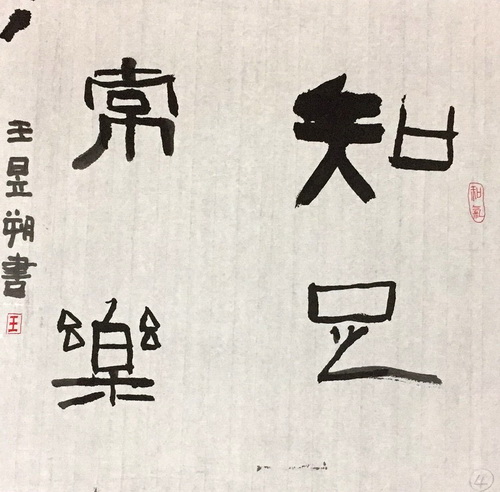 和氣
知足
常樂
王昱朔書
王
④